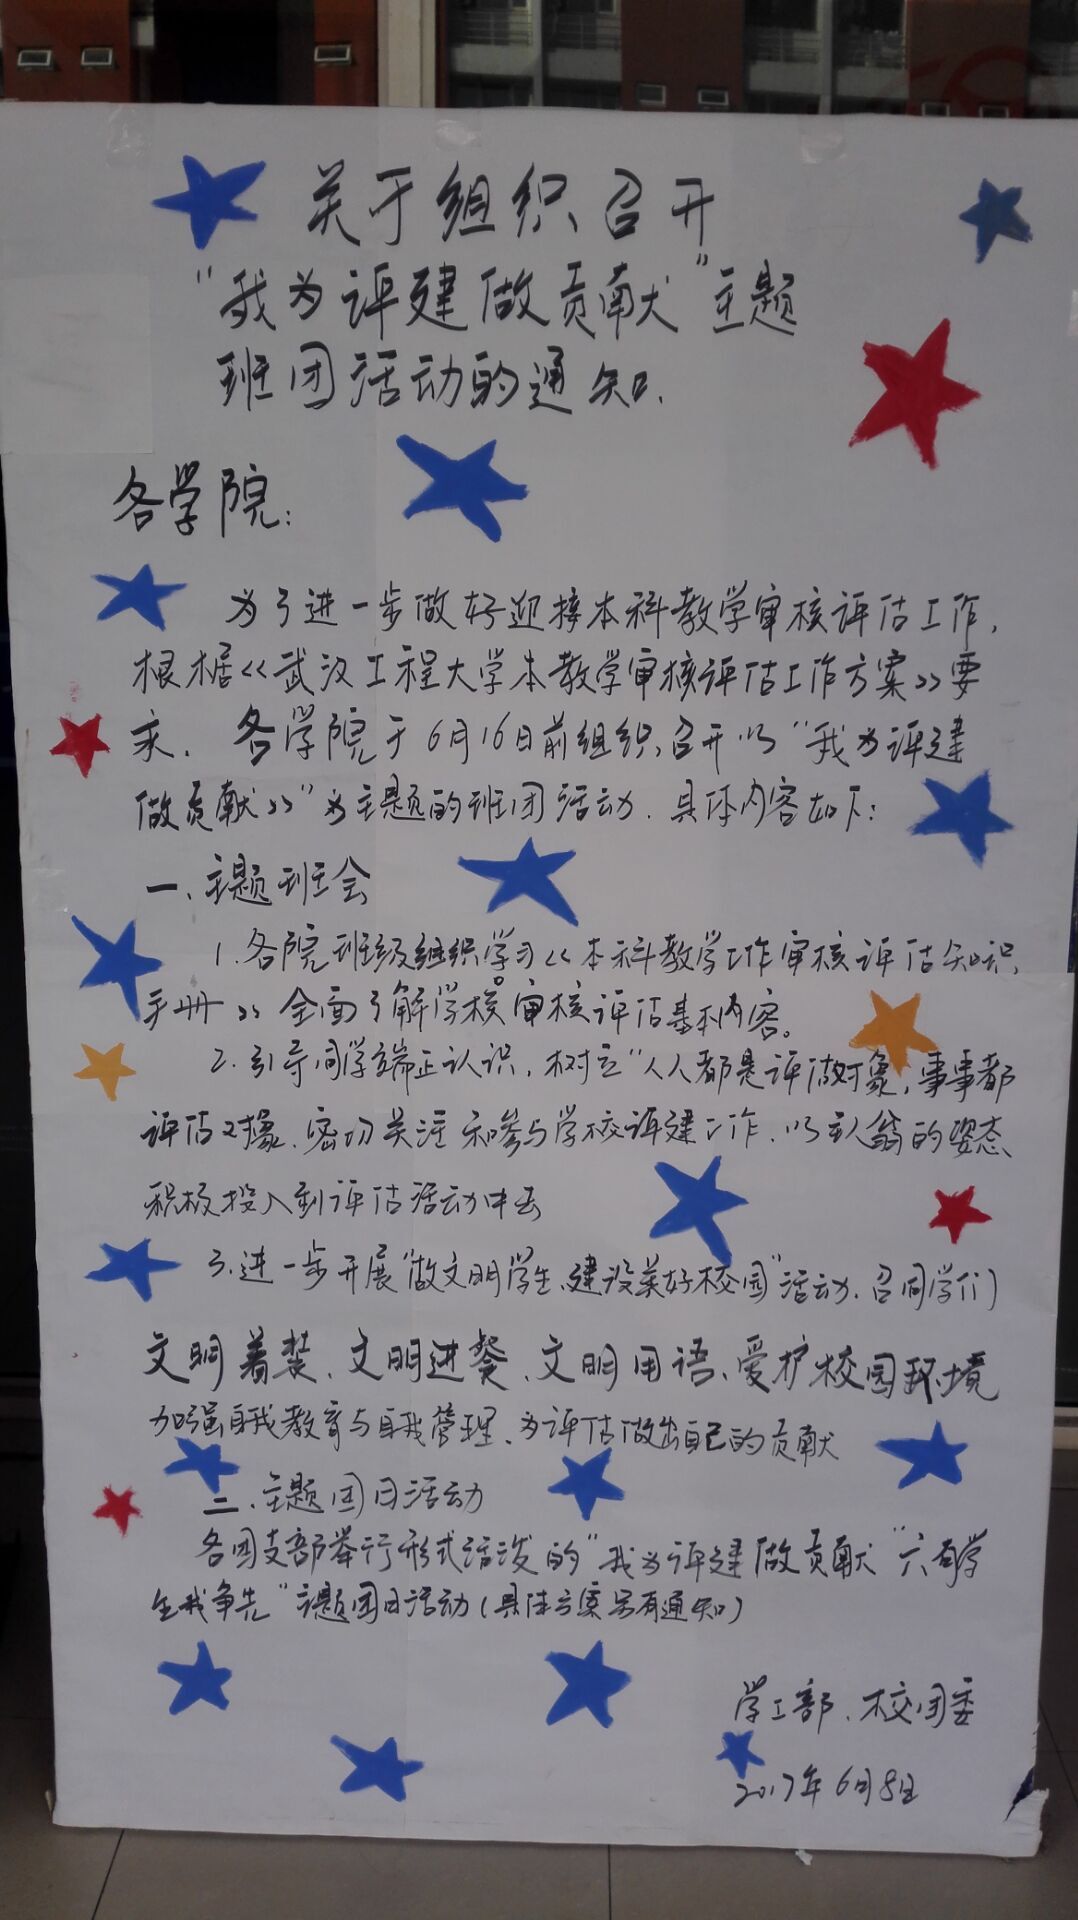 关于组织召开
“我为评建做贡献”主题
班团活动的通知.
各学院:
为了进一步做好迎接本科教学审核评估工作,
根椐《武汉工程大学本教学审核评估工作方案》要
求. 各学院于6月16日前组织召开以“我为评建
做贡献》”为主题的班团活动. 具体内容如下:
一、主题班会
1.各院班级继织学习《本科教学工作审核评估知识
手册》全面了解学校审核评估基本内容。
2.引导同学端正认识,树立“人人都是评做对象,事事都
评估对象.密切关注和参与学校评建工作.以主人翁的姿态
积极投入到评估活动中去
3.进一步开展“做文明学生、建设美好校园”活动.召同学们
文明着装、文明进餐、文明用语、爱护校园环境
加强自我教育与自我管理、为评估做出自己的贡献
二、主题团日活动
各团支部举行形式活泼的“我为评建做贡献“六有学
生我争先”主题团日活动(具体方案另有通知)
学工部、校团委
2017年6月8日